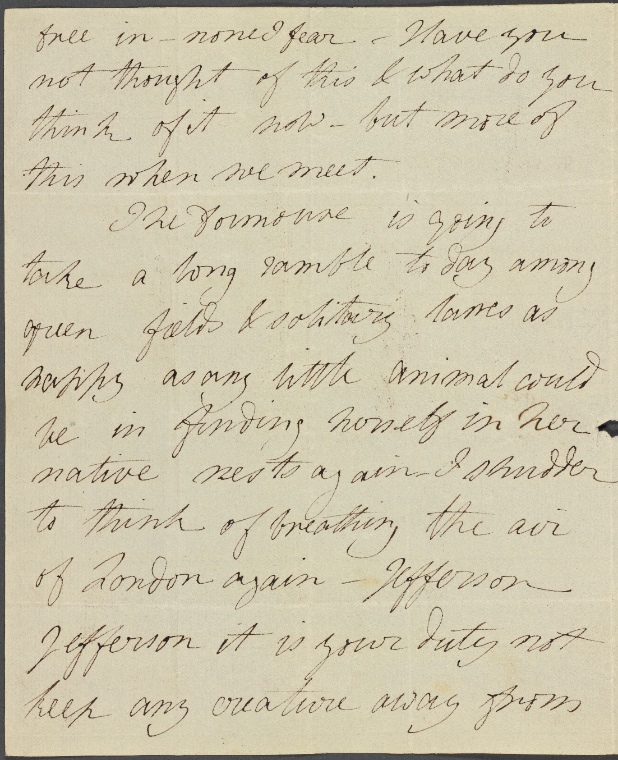 free in - none I fear - Have you
not thought of this & what do you
think of it now - but more of
this when we meet.
The Dormouse is going to
take a long ramble to day among
green fields & solitary lanes as
happy as any little animal could
be in finding herself in her
native nests again - I shudder
to think of breathing the air
of London again - Jefferson
Jefferson it is your duty not
keep any creature away from